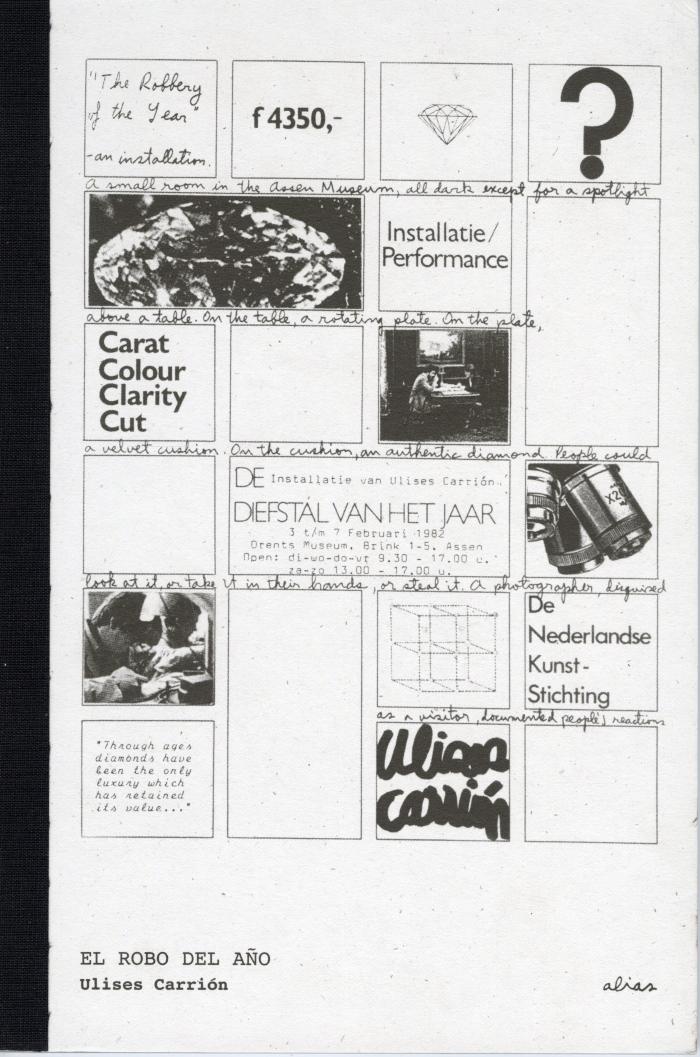 "The Robbery
of the Year"
-an installation.
f 4350,-
?
A small room in the Assen Museum, all dark except for a spotlight
Installatie/
Performance
above a table. On the table, a rotating plate. On the plate,
Carat
Colour
Clarity
Cut
a velvet cushion. On the cushion, an authentic diamond. People could
DE Installatie van Ulises Carrión.
DIEFSTAL VAN HET JAAR
3 t/m 7 Februari 1982
Drents Museum, Brink 1-5, Assen
Open: di-wo-do-vr 9.30 - 17.00 u.
za-zo 13.00 - 17.00 u.
X20
look at it or take it in their hands, or steal it. A photographer, disguised
De
Nederlandse
Kunst-
Stichting
as a visitor, documented people's reactions
"Through ages
diamonds have
been the only
luxury which
has retained
its value..."
Ulises
Carrión
EL ROBO DEL AÑO
Ulises Carrión
alias